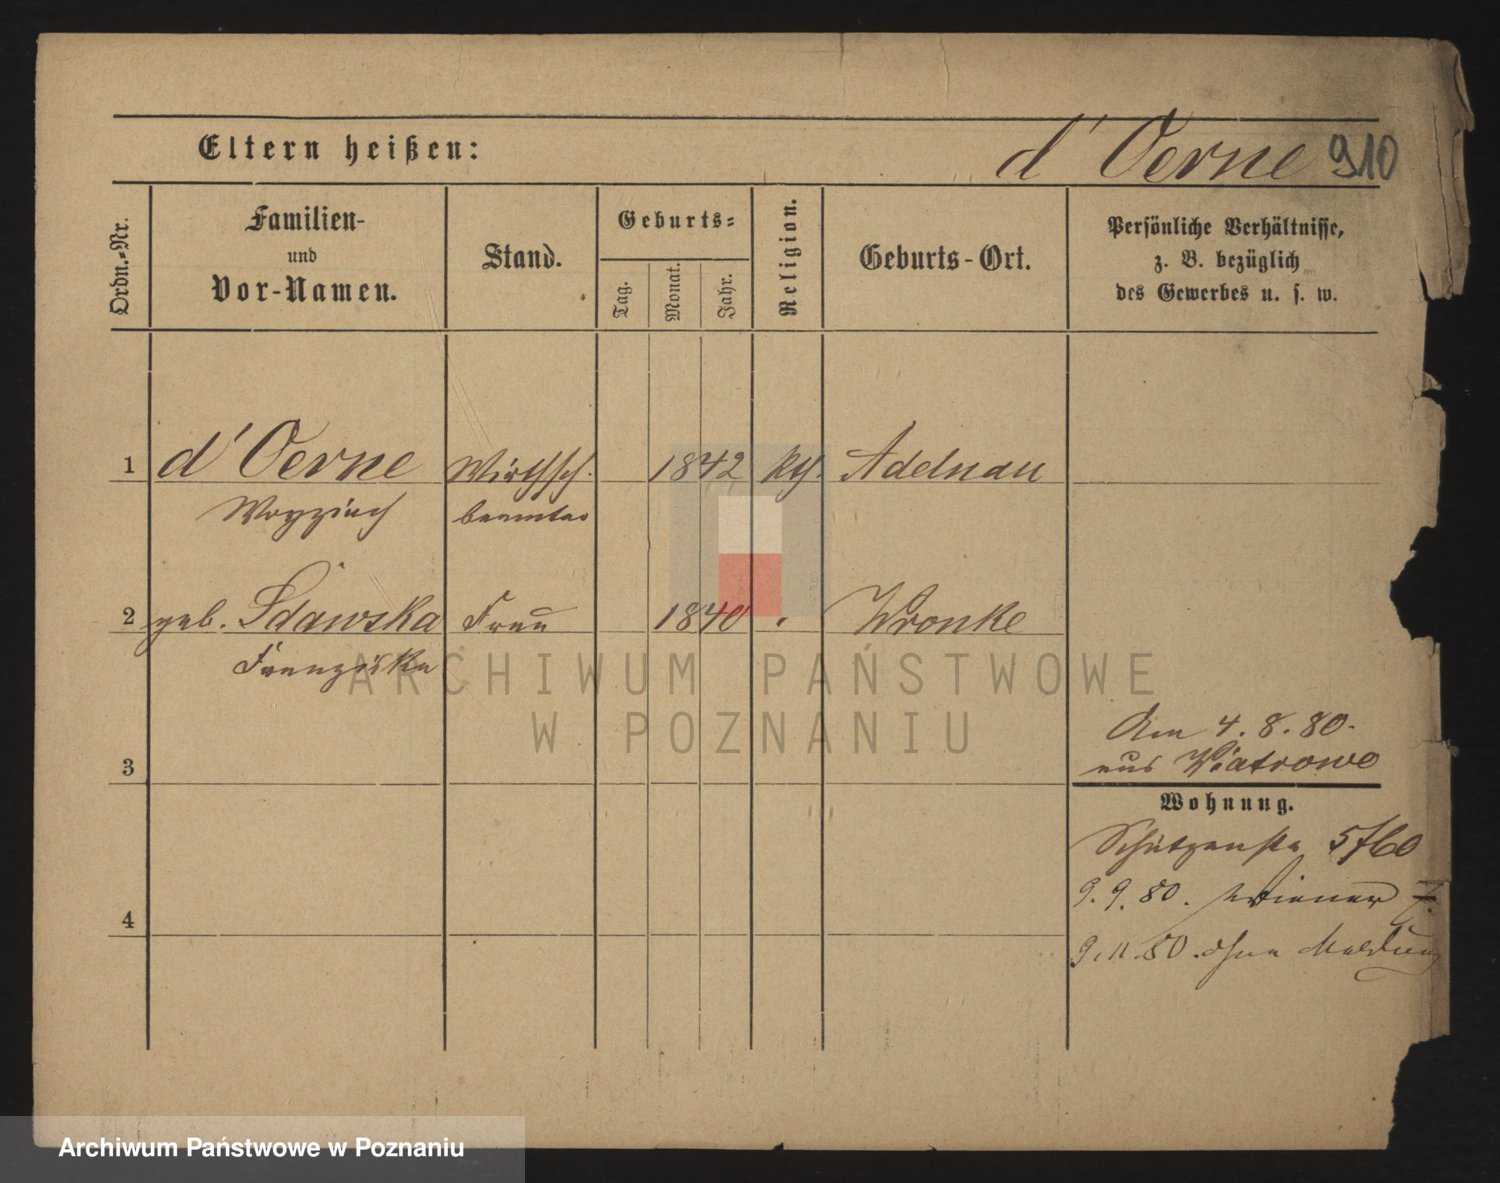 Eltern heißen:
d'Oerne 910
Ordn.-Nr.
Familien-
und
Vor-Namen.
Stand.
Geburts-
Tag.
Monat.
Jahr.
Religion.
Geburts-Ort.
Persönliche Verhältnisse,
z. B. bezüglich
des Gewerbes u. s. w.
1 d'Oerne Wirthsch. 1842 kth. Adelnau
beamter
2 geb. Sdawska Frau 1840 " Wronke
Franziska
ARCHIWUM PAŃSTWOWE
W POZNANIU
Am 4. 8. 80.
aus Wiatrowo
3
Wohnung.
Schützenstr 5/60
9. 9. 80. Wiener
4
9. 11. 80. ohne Meldung
Archiwum Państwowe w Poznaniu